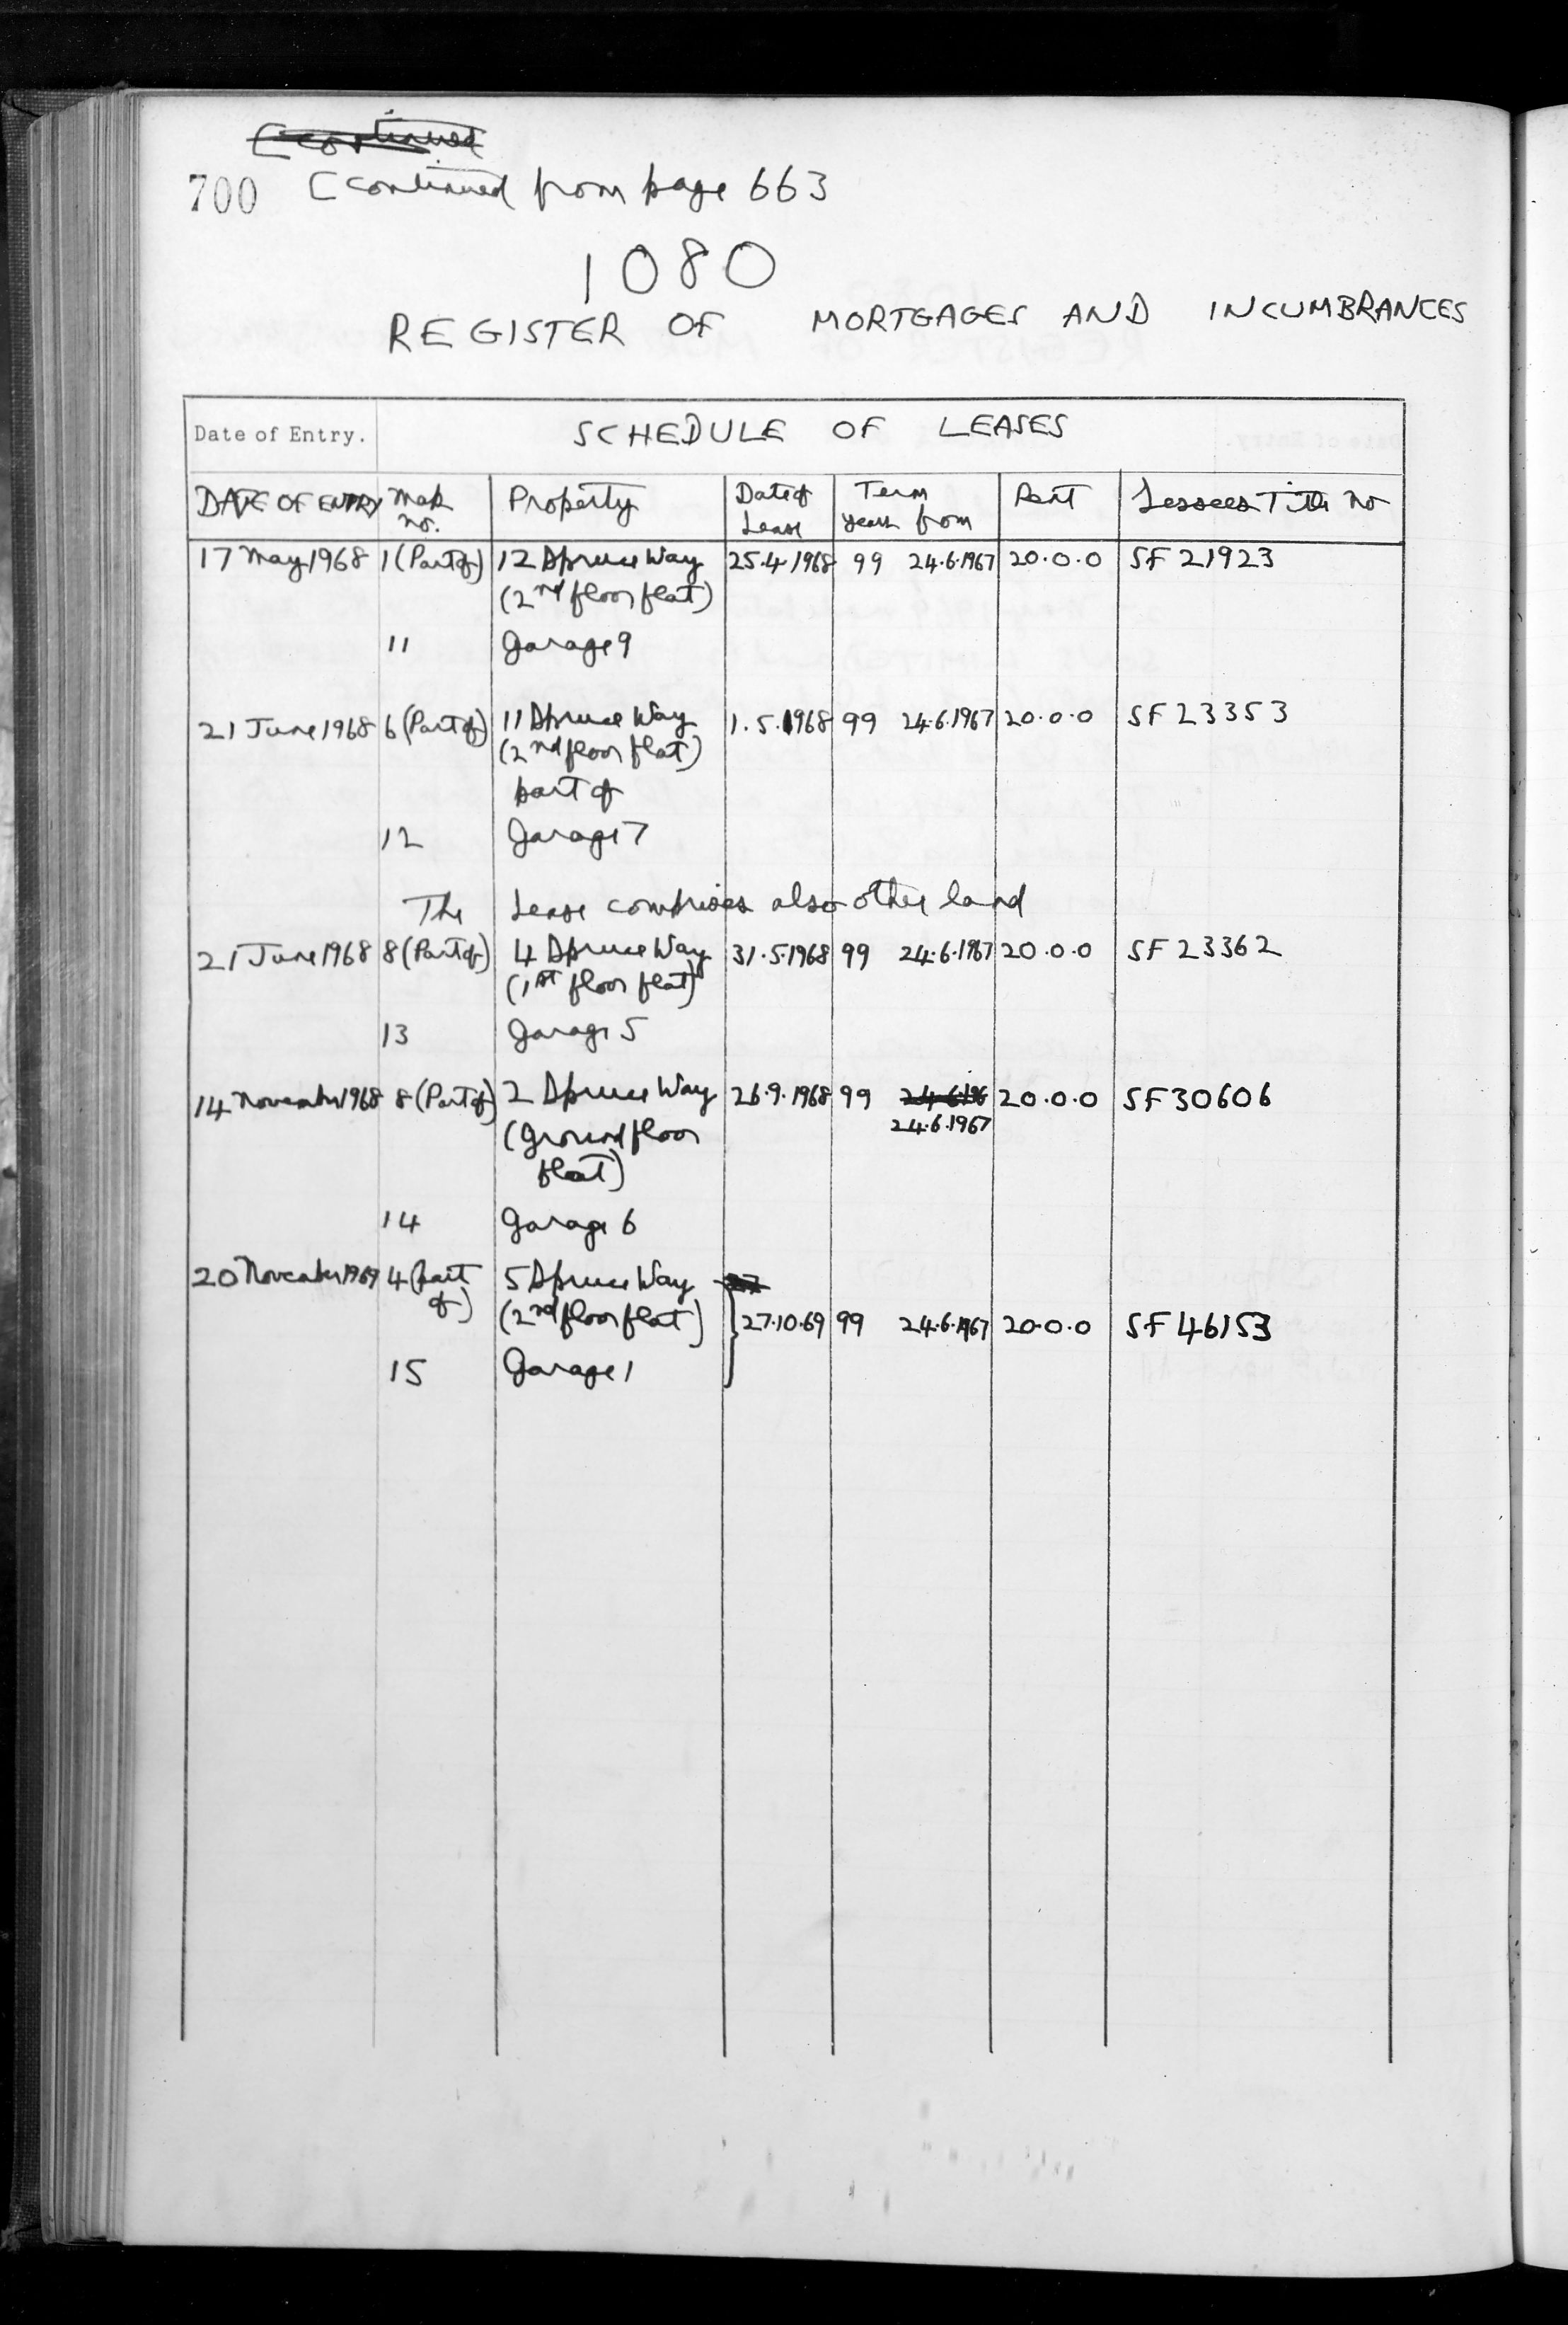 [continued
700 [continued from page 663
1080
REGISTER OF MORTGAGES AND INCUMBRANCES
Date of Entry. SCHEDULE OF LEASES
DATE OF ENTRY Map no. Property Date of Lease Term years from Rent Lessees Title No
17 May 1968 1 (Part of) 12 Spruce Way 25.4.1968 99 24.6.1967 20.0.0 SF 21923
(2nd floor flat)
11 Garage 9
21 June 1968 6 (Part of) 11 Spruce Way 1.5.1968 99 24.6.1967 20.0.0 SF 23353
(2nd floor flat)
part of
12 Garage 7
The Lease comprises also other land
21 June 1968 8 (Part of) 4 Spruce Way 31.5.1968 99 24.6.1967 20.0.0 SF 23362
(1st floor flat)
13 Garage 5
14 November 1968 8 (Part of) 2 Spruce Way 26.9.1968 99 24.6.196 20.0.0 SF 30606
(Ground floor 24.6.1967
flat)
14 Garage 6
20 November 1969 4 (part 5 Spruce Way 27
of) (2nd floor flat) 27.10.69 99 24.6.1967 20.0.0 SF 46153
15 Garage 1